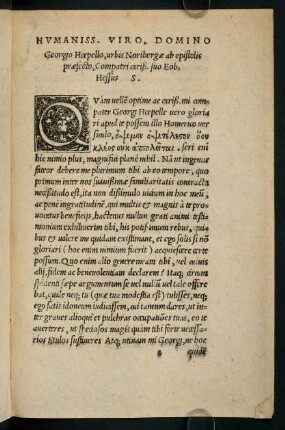 HVMANISS. VIRO, DOMINO
Georgio Hœpello, urbis Noribergæ ab epistolis
præfecto, Compatri cariß. suo Eob.
Hessus S.
QVàm uellẽ optime ac cariß. mi com
pater Georgi Hœpelle uero gloria
ri apud te possem illo Homerico uer
siculo,
ἀτέλεστον ὅου
κλέος οὐκ
seri eni
hic nimio plus, magnisq́; planè nihil. Nã ut ingenuè
fatear debere me plurimum tibi ab eo tempore, quo
primum inter nos suauissimæ familiaritatis contracta
neceßitudo est, ita non dißimulo uitium in hoc meũ,
ac penè ingratitudinẽ, qui multis & magnis à te pro
uocatus beneficijs, hactenus nullum grati animi testi
monium exhibuerim tibi, his potißimum rebus, qui-
bus & ualere me quidam existimant, et ego solis si nõ
gloriari (hoc enim nimium fuerit) acquiescere certe
possum. Quo enim alio genere meam tibi, uel animi
alij, fidem ac beneuolentiam declarem? Itaq́; dum
spem ut argumentum se uel nullũ uel tale offerre
bat, quale neq; tu (quæ tua modestia est) tulisses, neq;
ego satis idoneum iudicassem, uel tamen dares, ut in
ter graues alioqui et pulchras occupatiões tuas, eo te
auerteres, ut studiosos magis quàm tibi forte necessa-
rios titulos sustineres Atq; utinam mi Georgi, uel hoc
quide